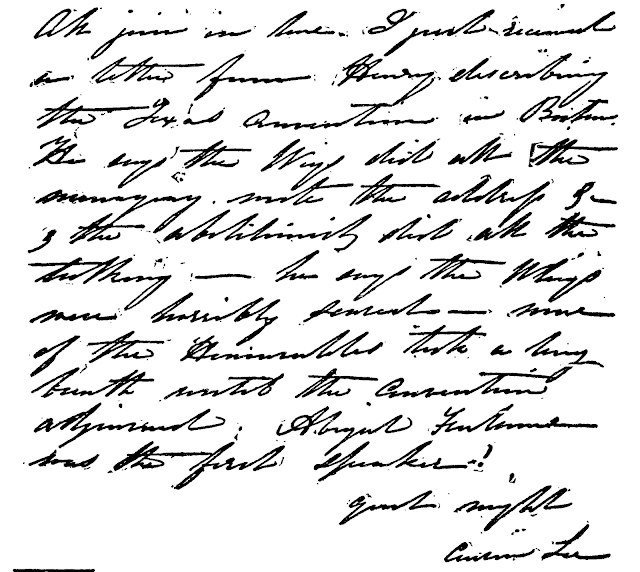 All join in love. I just received
a letter from Henry describing
the Texas Convention in Boston.
He says the Wigs did all the
managing. wrote the address &c
& the abolitionists did all the
talking — he says the Whigs
were horribly scared — none
of the Honourables took a long
breath until the convention
adjourned. Abigail
was the first speaker!
good night